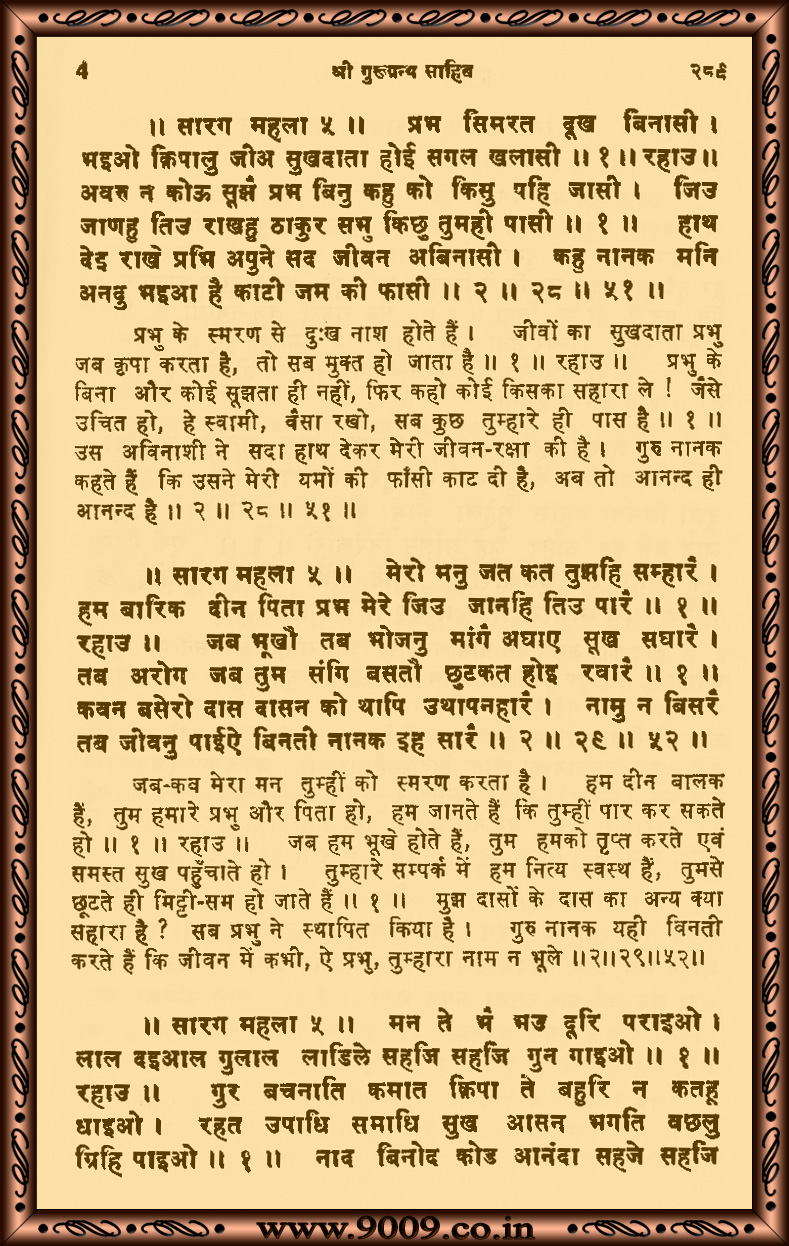 4 श्री गुरूग्रन्थ साहिब २८९
॥ सारग महला ५ ॥ प्रभ सिमरत दूख बिनासी ।
भइओ क्रिपालु जीअ सुखदाता होई सगल खलासी ॥ १ ॥ रहाउ ॥
अवरु न कोऊ सूझै प्रभ बिनु कहु को किसु पहि जासी । जिउ
जाणहु तिउ राखहु ठाकुर सभु किछु तुमही पासी ॥ १ ॥ हाथ
देइ राखे प्रभि अपुने सद जीवन अबिनासी । कहु नानक मनि
अनदु भइआ है काटी जम की फासी ॥ २ ॥ २८ ॥ ५१ ॥
प्रभु के स्मरण से दुःख नाश होते हैं । जीवों का सुखदाता प्रभु
जब कृपा करता है, तो सब मुक्त हो जाता है ॥ १ ॥ रहाउ ॥ प्रभु के
बिना और कोई सूझता ही नहीं, फिर कहो कोई किसका सहारा ले ! जैसे
उचित हो, हे स्वामी, वैसा रखो, सब कुछ तुम्हारे ही पास है ॥ १ ॥
उस अविनाशी ने सदा हाथ देकर मेरी जीवन-रक्षा की है । गुरु नानक
कहते हैं कि उसने मेरी यमों की फाँसी काट दी है, अब तो आनन्द ही
आनन्द है ॥ २ ॥ २८ ॥ ५१ ॥
॥ सारग महला ५ ॥ मेरो मनु जत कत तुझहि सम्हारै ।
हम बारिक दीन पिता प्रभ मेरे जिउ जानहि तिउ पारै ॥ १ ॥
रहाउ ॥ जब भूखौ तब भोजनु मांगै अघाए सूख सघारै ।
तब अरोग जब तुम संगि बसतौ छुटकत होइ रवारै ॥ १ ॥
कवन बसेरो दास दासन को थापि उथापनहारै । नामु न बिसरै
तब जीवनु पाईऐ बिनती नानक इह सारै ॥ २ ॥ २९ ॥ ५२ ॥
जब-कब मेरा मन तुम्हीं को स्मरण करता है । हम दीन बालक
हैं, तुम हमारे प्रभु और पिता हो, हम जानते हैं कि तुम्हीं पार कर सकते
हो ॥ १ ॥ रहाउ ॥ जब हम भूखे होते हैं, तुम हमको तृप्त करते एवं
समस्त सुख पहुँचाते हो । तुम्हारे सम्पर्क में हम नित्य स्वस्थ हैं, तुमसे
छूटते ही मिट्टी-सम हो जाते हैं ॥ १ ॥ मुझ दासों के दास का अन्य क्या
सहारा है ? सब प्रभु ने स्थापित किया है । गुरु नानक यही विनती
करते हैं कि जीवन में कभी, ऐ प्रभु, तुम्हारा नाम न भूले ॥२॥२९॥५२॥
॥ सारग महला ५ ॥ मन ते भै भउ दूरि पराइओ ।
लाल दइआल गुलाल लाडिले सहजि सहजि गुन गाइओ ॥ १ ॥
रहाउ ॥ गुर बचनाति कमात क्रिपा ते बहुरि न कतहू
धाइओ । रहत उपाधि समाधि सुख आसन भगति वछलु
ग्रिहि पाइओ ॥ १ ॥ नाद बिनोद कोड आनंदा सहजे सहजि
www.9009.co.in